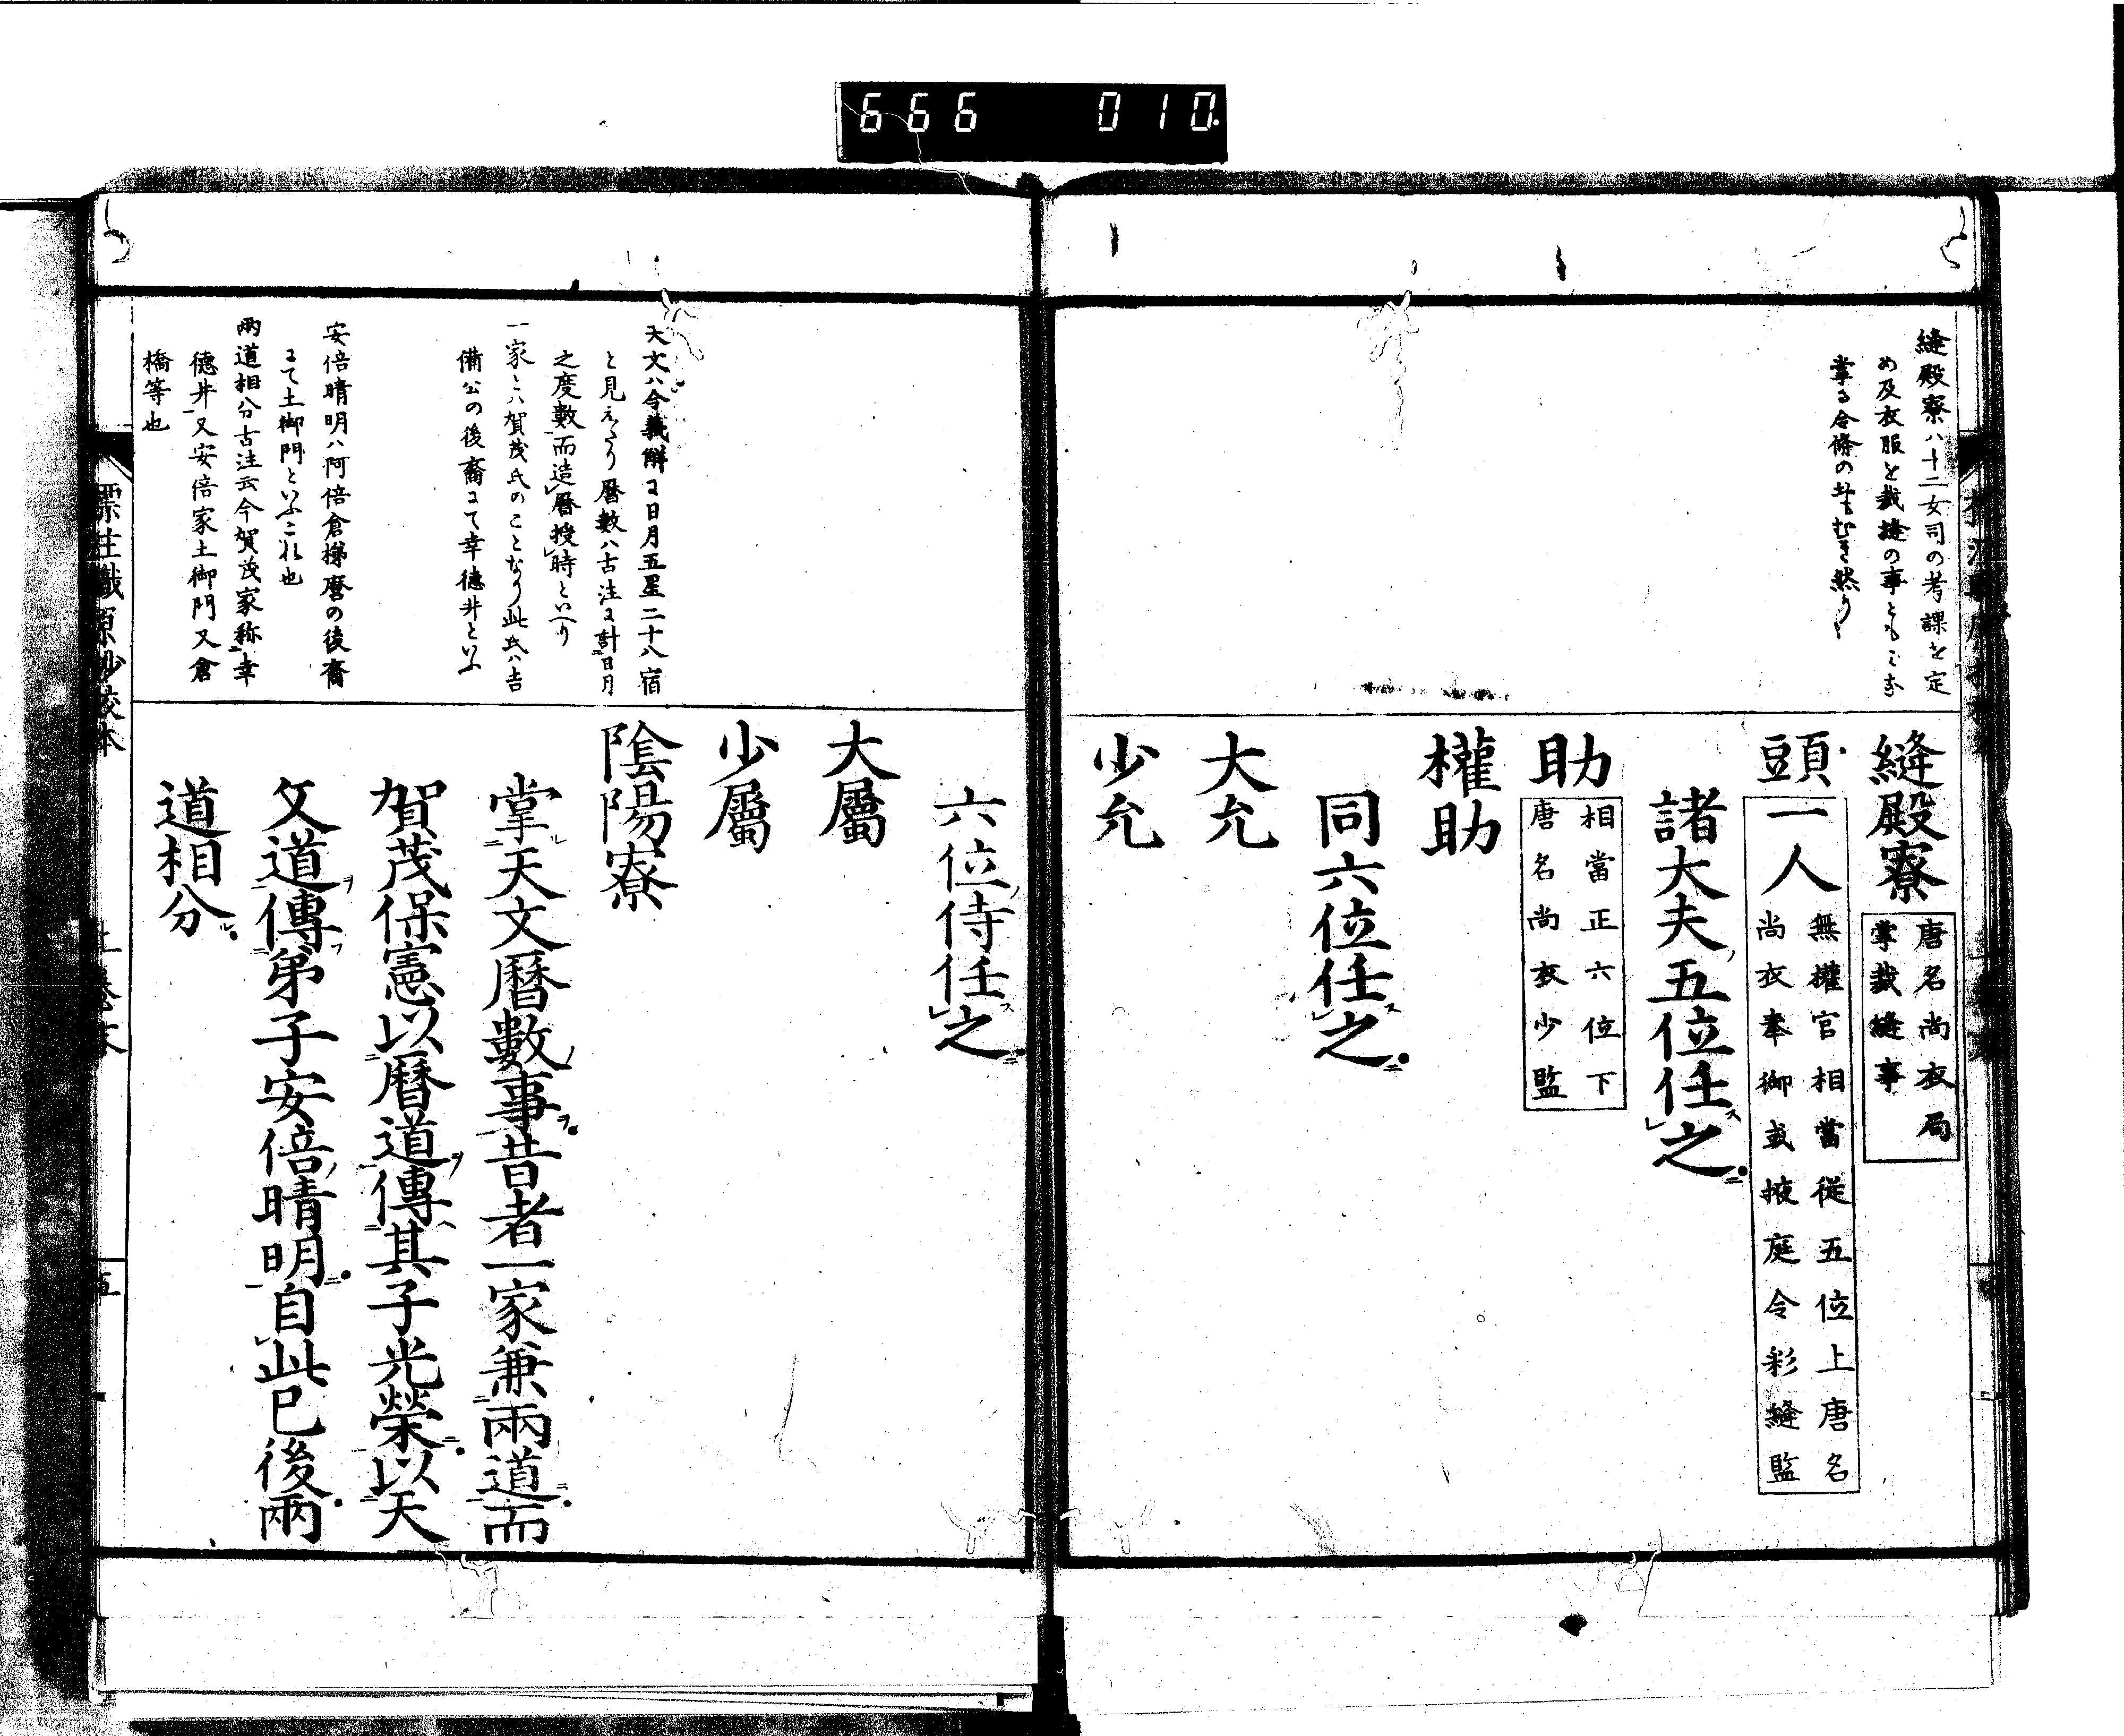 666 010
縫殿寮ハ十二女司の考課を定
め及衣服を裁縫の事ともに
掌る令條の
縫殿寮
唐名尚衣局
掌裁縫事
頭一人
無權官相當従五位上唐名
尚衣奉御或掖庭令彩縫監
諸大夫五位任之
助
相當正六位下
唐名尚衣少監
權助
同六位任之
大允
少允
天文ハ令義解に日月五星二十八宿
と見えたり暦數ハ古注に計日月
之度數而造暦授時といへり
一家とハ賀茂氏のことなり此氏ハ吉
備公の後裔にて幸德井といふ
安倍晴明ハ阿倍倉梯麿の後裔
にて土御門といふこれ也
兩道相分古注云今賀茂家称幸
德井又安倍家土御門又倉
橋等也
六位侍任之
大屬
少屬
陰陽寮
掌天文暦數事昔者一家兼兩道而
賀茂保憲以暦道傳其子光榮以天
文道傳弟子安倍晴明自此已後兩
道相分
標注職原抄校本
五